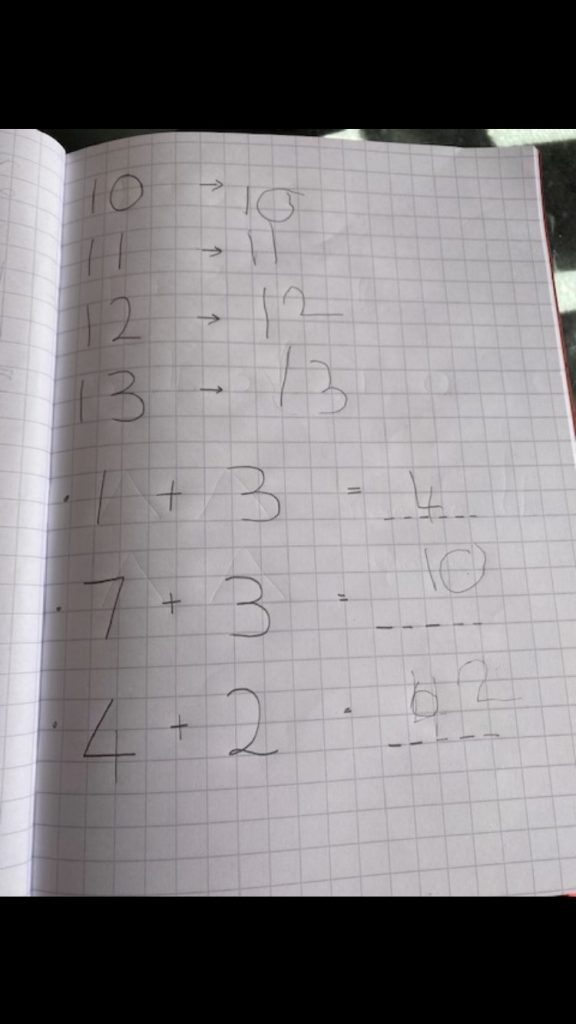 10 → 10
11 → 11
12 → 12
13 → 13
· 1 + 3 = 4
· 7 + 3 = 10
· 4 + 2 · 2